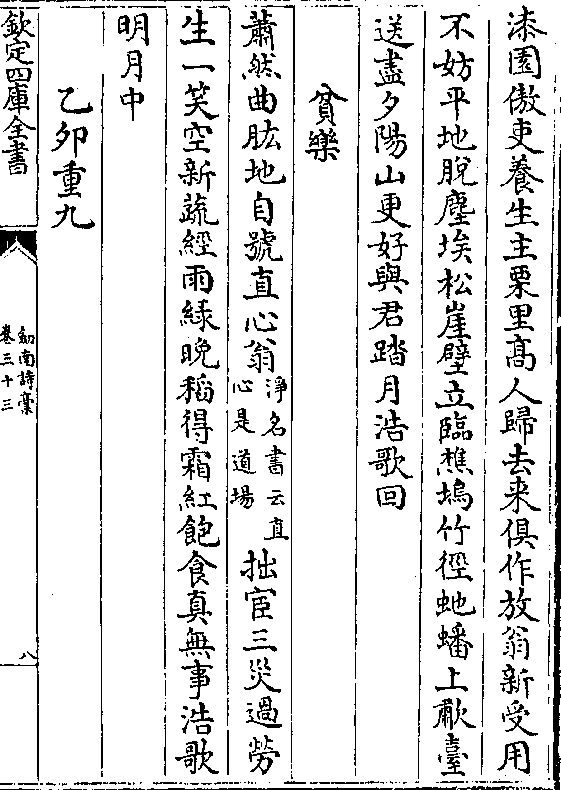 漆園傲吏養生主栗里髙人歸去来俱作放翁新受用
不妨平地脫塵埃松崖壁立臨樵塢竹徑虵蟠上厰臺
送盡夕陽山更好與君踏月浩歌回
貧樂
蕭然曲肱地自號直心翁淨名書云直心是道場拙宦三災過勞
生一笑空新蔬經雨緑晚稻得霜紅飽食真無事浩歌
明月中
乙夘重九
欽定四庫全書
劔南詩藳
卷三十三
八